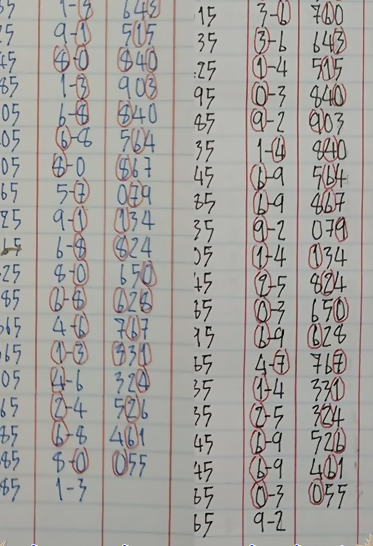 35 1-3 643
25 9-1 515
45 8-0 840
85 1-3 903
05 6-8 840
05 6-8 564
05 8-0 867
65 5-7 079
25 9-1 134
65 6-8 824
25 8-0 650
85 6-8 628
665 4-6 767
665 1-3 331
05 4-6 324
65 2-4 526
85 6-8 461
85 8-0 055
85 1-3
15 3-6 760
35 3-6 643
25 1-4 515
95 0-3 840
85 9-2 903
35 1-4 840
45 6-9 564
85 6-9 867
35 9-2 079
05 1-4 134
45 2-5 824
65 0-3 650
75 6-9 628
65 4-7 767
35 1-4 331
35 2-5 324
45 6-9 526
45 6-9 461
65 0-3 055
65 9-2